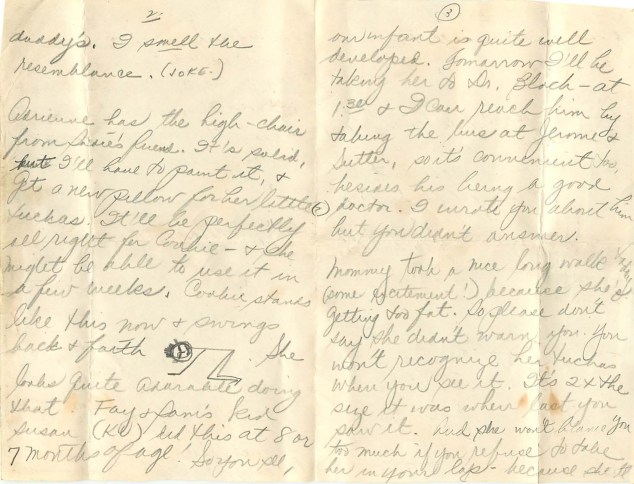 2.
daddy's. I smell the
resemblance. (JOKE.)
Adrienne has the high-chair
from friend. It's solid,
but I'll have to paint it, &
get a new pillow for her little
tuchas. It'll be perfectly
all right for Cookie - & she
might be able to use it in
a few weeks. Cookie stands
like this now & swings
back & forth . She
looks quite adorable doing
that Fay & Sam's kid
Susan did this at 8 or
7 months of age! So you see,
3
our infant is quite well
developed. Tomorrow I'll be
taking her to Dr. Block - at
1:30 & I can reach him by
taking the bus at Jerome &
, so it's convenient too,
besides his being a good
doctor. I wrote you about him
but you didn't answer.
Mommy took a nice long walk
(some excitement!) because she's
getting too fat. So please don't
say she didn't warn you. You
won't recognize her tuchas
when you see it. It's 2 x the
size it was when last you
saw it. And she won't blame you
too much if you refuse to take
her in your lap - because she'll